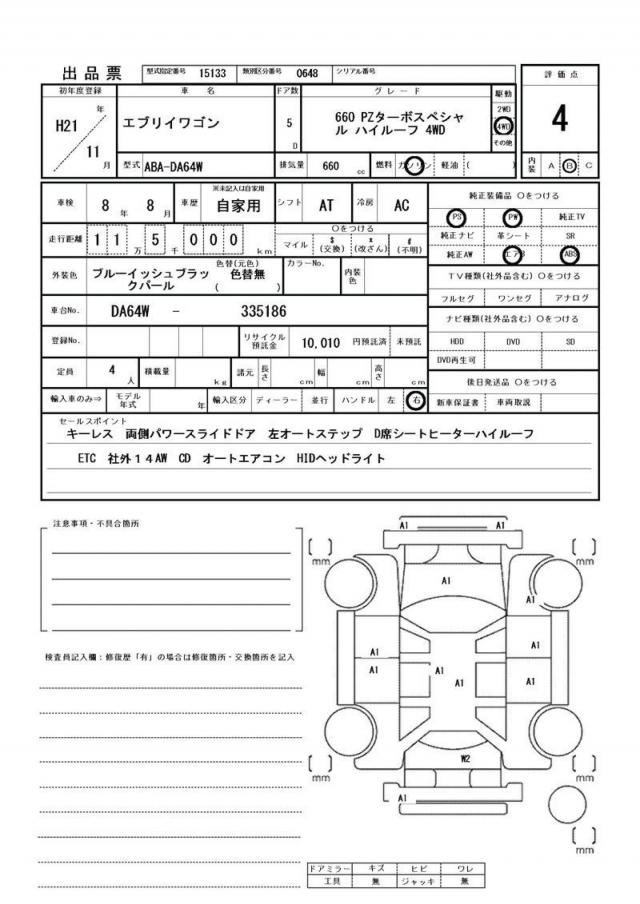 出品票 型式指定番号 15133 類別区分番号 0648 シリアル番号
評価点
初年度登録 車名 ドア数 グレード 駆動
H21 年 11 月
エブリイワゴン
5 D
660 PZターボスペシャル ハイルーフ 4WD
2WD
4WD
その他
4
型式 ABA-DA64W 排気量 660 cc 燃料 ガソリン 軽油 ( )
内装 A B C
車検 8 年 8 月 車歴 ※未記入は自家用 自家用 シフト AT 冷房 AC
純正装備品 ○をつける
PS PW 純正TV
走行距離 1 1 万 5 千 0 0 0 km
○をつける
マイル $ (交換) x (改ざん) # (不明)
純正ナビ 革シート SR
純正AW エアB ABS
外装色 ブルーイッシュブラックパール 色替(元色) 色替無 ( ) カラーNo. 内装色
TV種類(社外品含む) ○をつける
フルセグ ワンセグ アナログ
車台No. DA64W - 335186
ナビ種類(社外品含む) ○をつける
登録No. リサイクル預託金 10,010 円預託済 未預託
HDD DVD SD
DVD再生可
定員 4 人 積載量 kg 諸元 長さ cm 幅 cm 高さ cm
後日発送品 ○をつける
輸入車のみ⇒ モデル年式 年 輸入区分 ディーラー 並行 ハンドル 左 右
新車保証書 車両取説
セールスポイント
キーレス 両側パワースライドドア 左オートステップ D席シートヒーターハイルーフ
ETC 社外14AW CD オートエアコン HIDヘッドライト
注意事項・不具合箇所
検査員記入欄：修復歴「有」の場合は修復箇所・交換箇所を記入
A1 A1
mm mm
A1
A1
A1 A1
A1 A1 A1 A1
W2
mm mm
A1
mm
ドアミラー キズ ヒビ ワレ
工具 無 ジャッキ 無